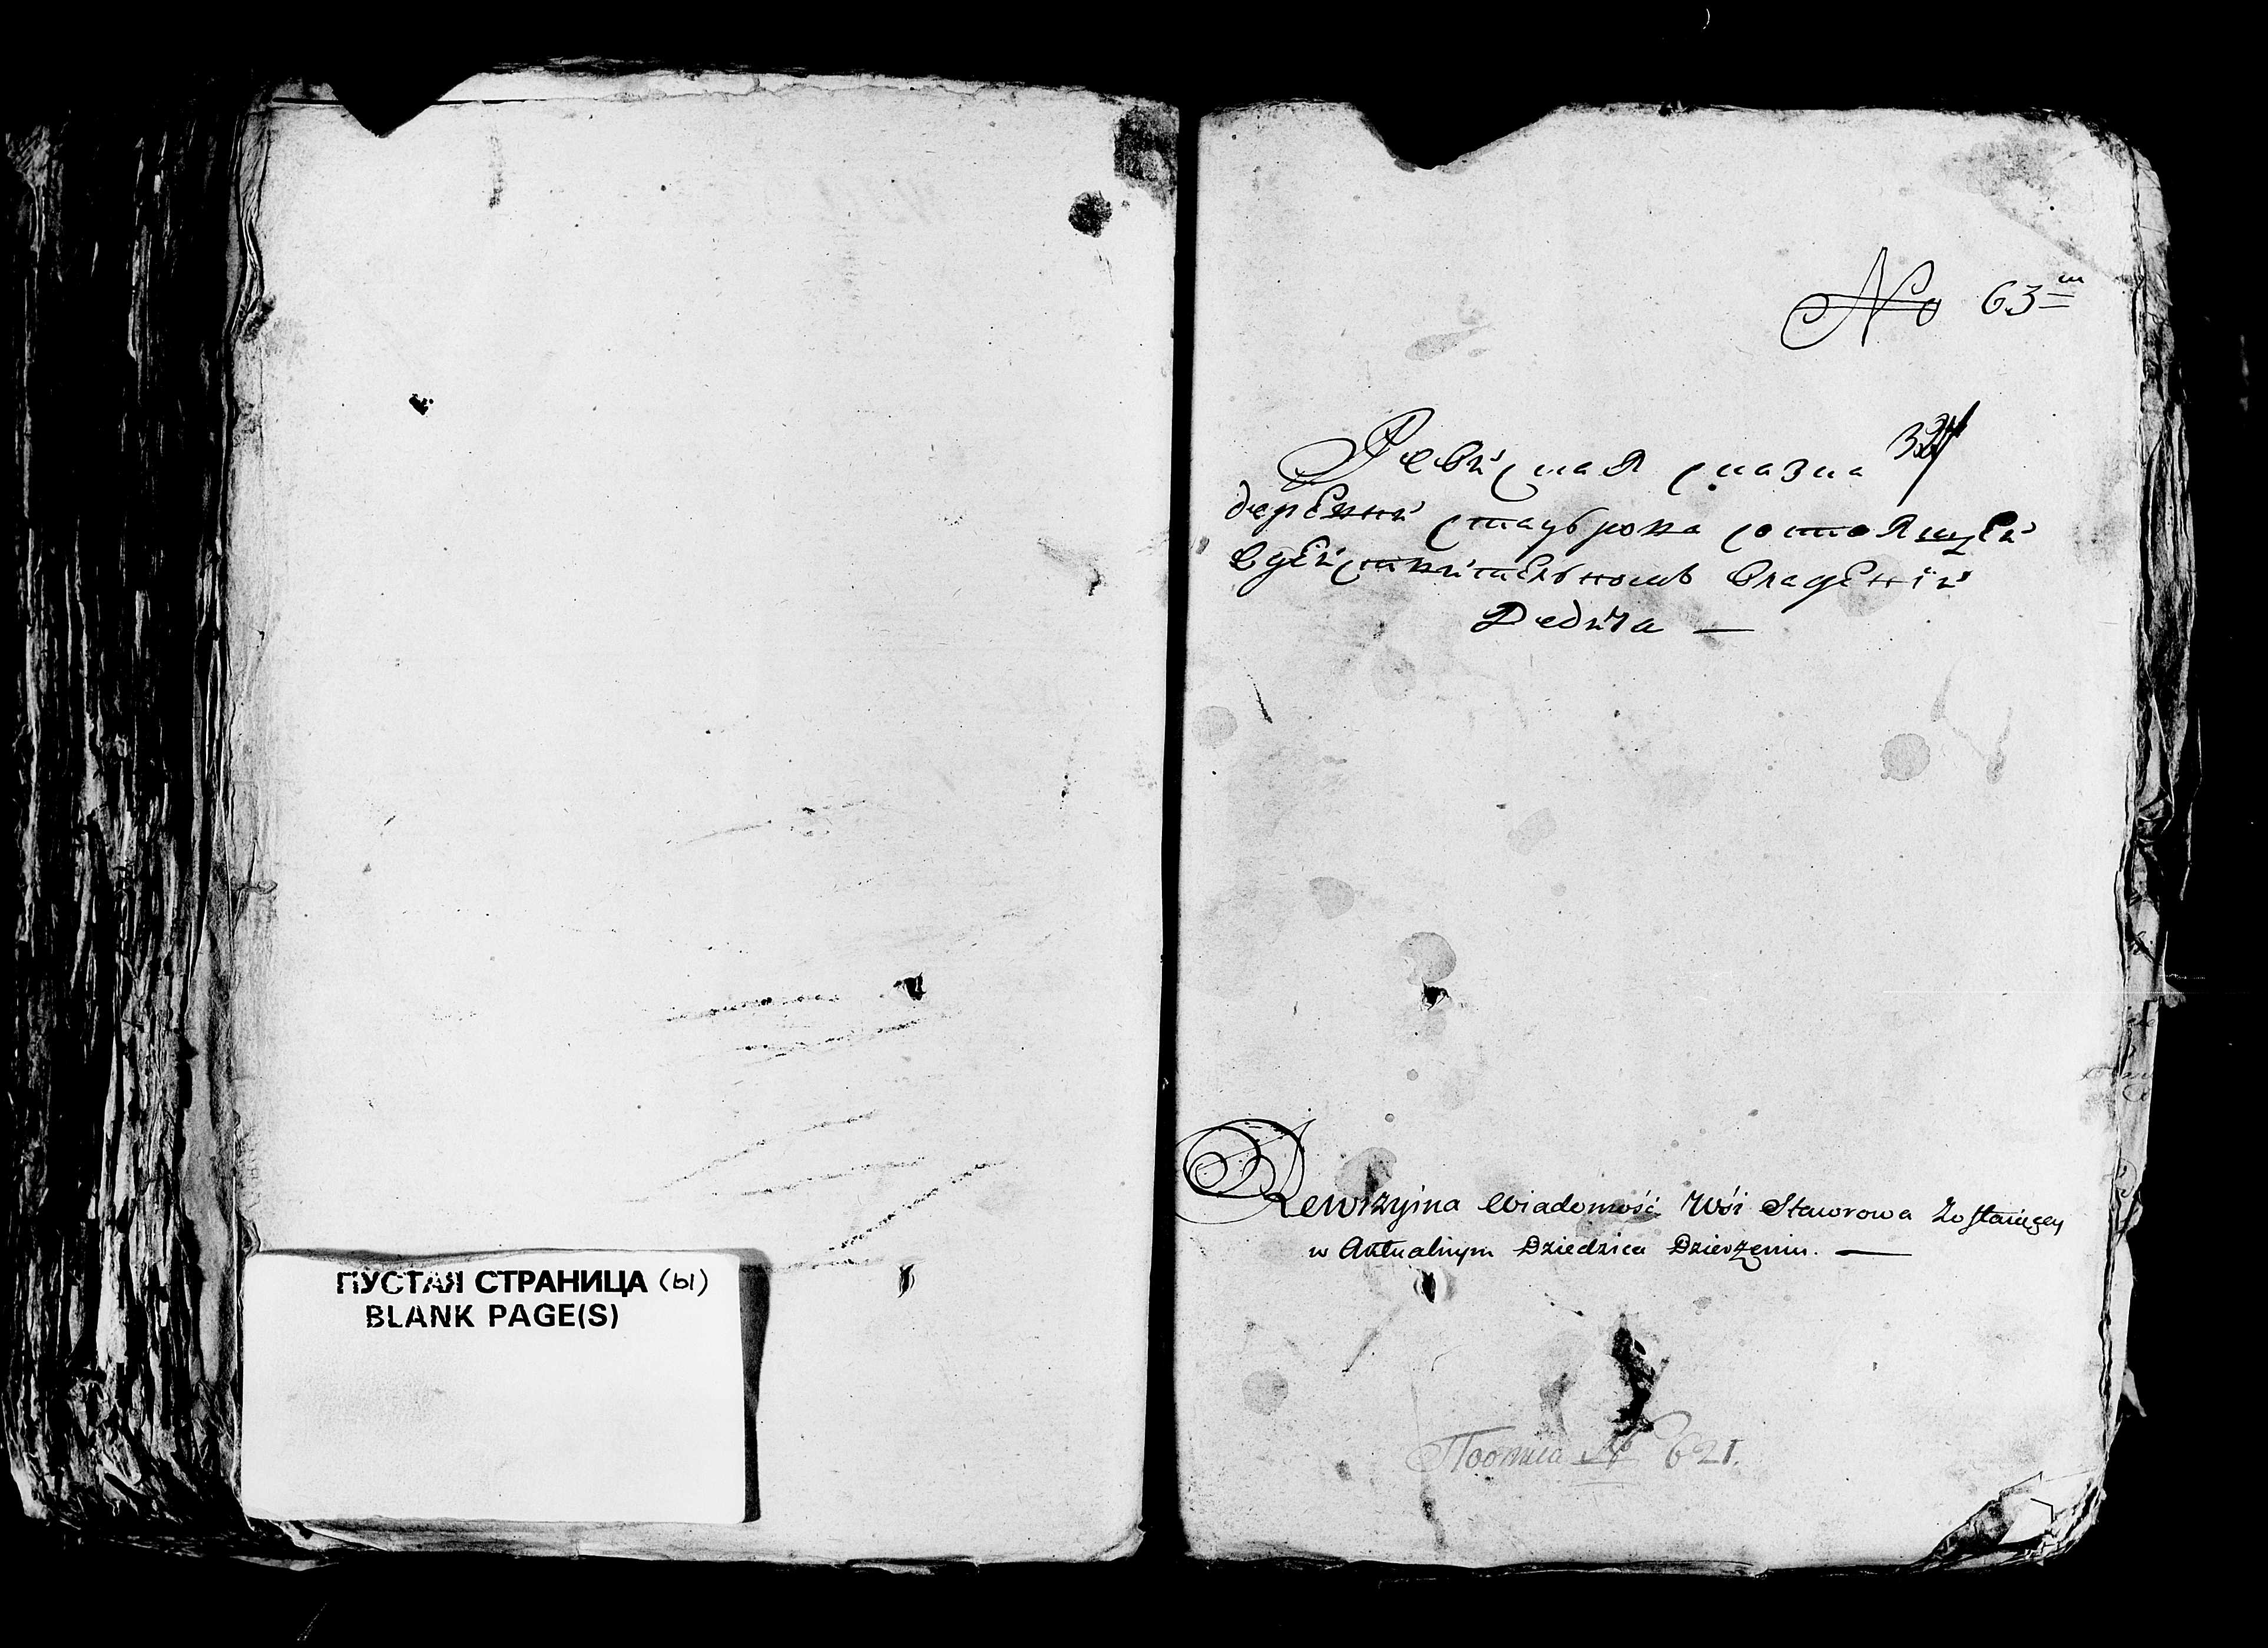 ПУСТАЯ СТРАНИЦА (ы)
BLANK PAGE(S)
No 63
Ревиская сказка
деревни стауврова состоящей
вдействительномъ владении
Дедича —
Rewizyina Wiadomość Wsi Stawrowa Zostaiącey
w Aktualnym Dziedzica Dzierżeniu. —
№ 621.